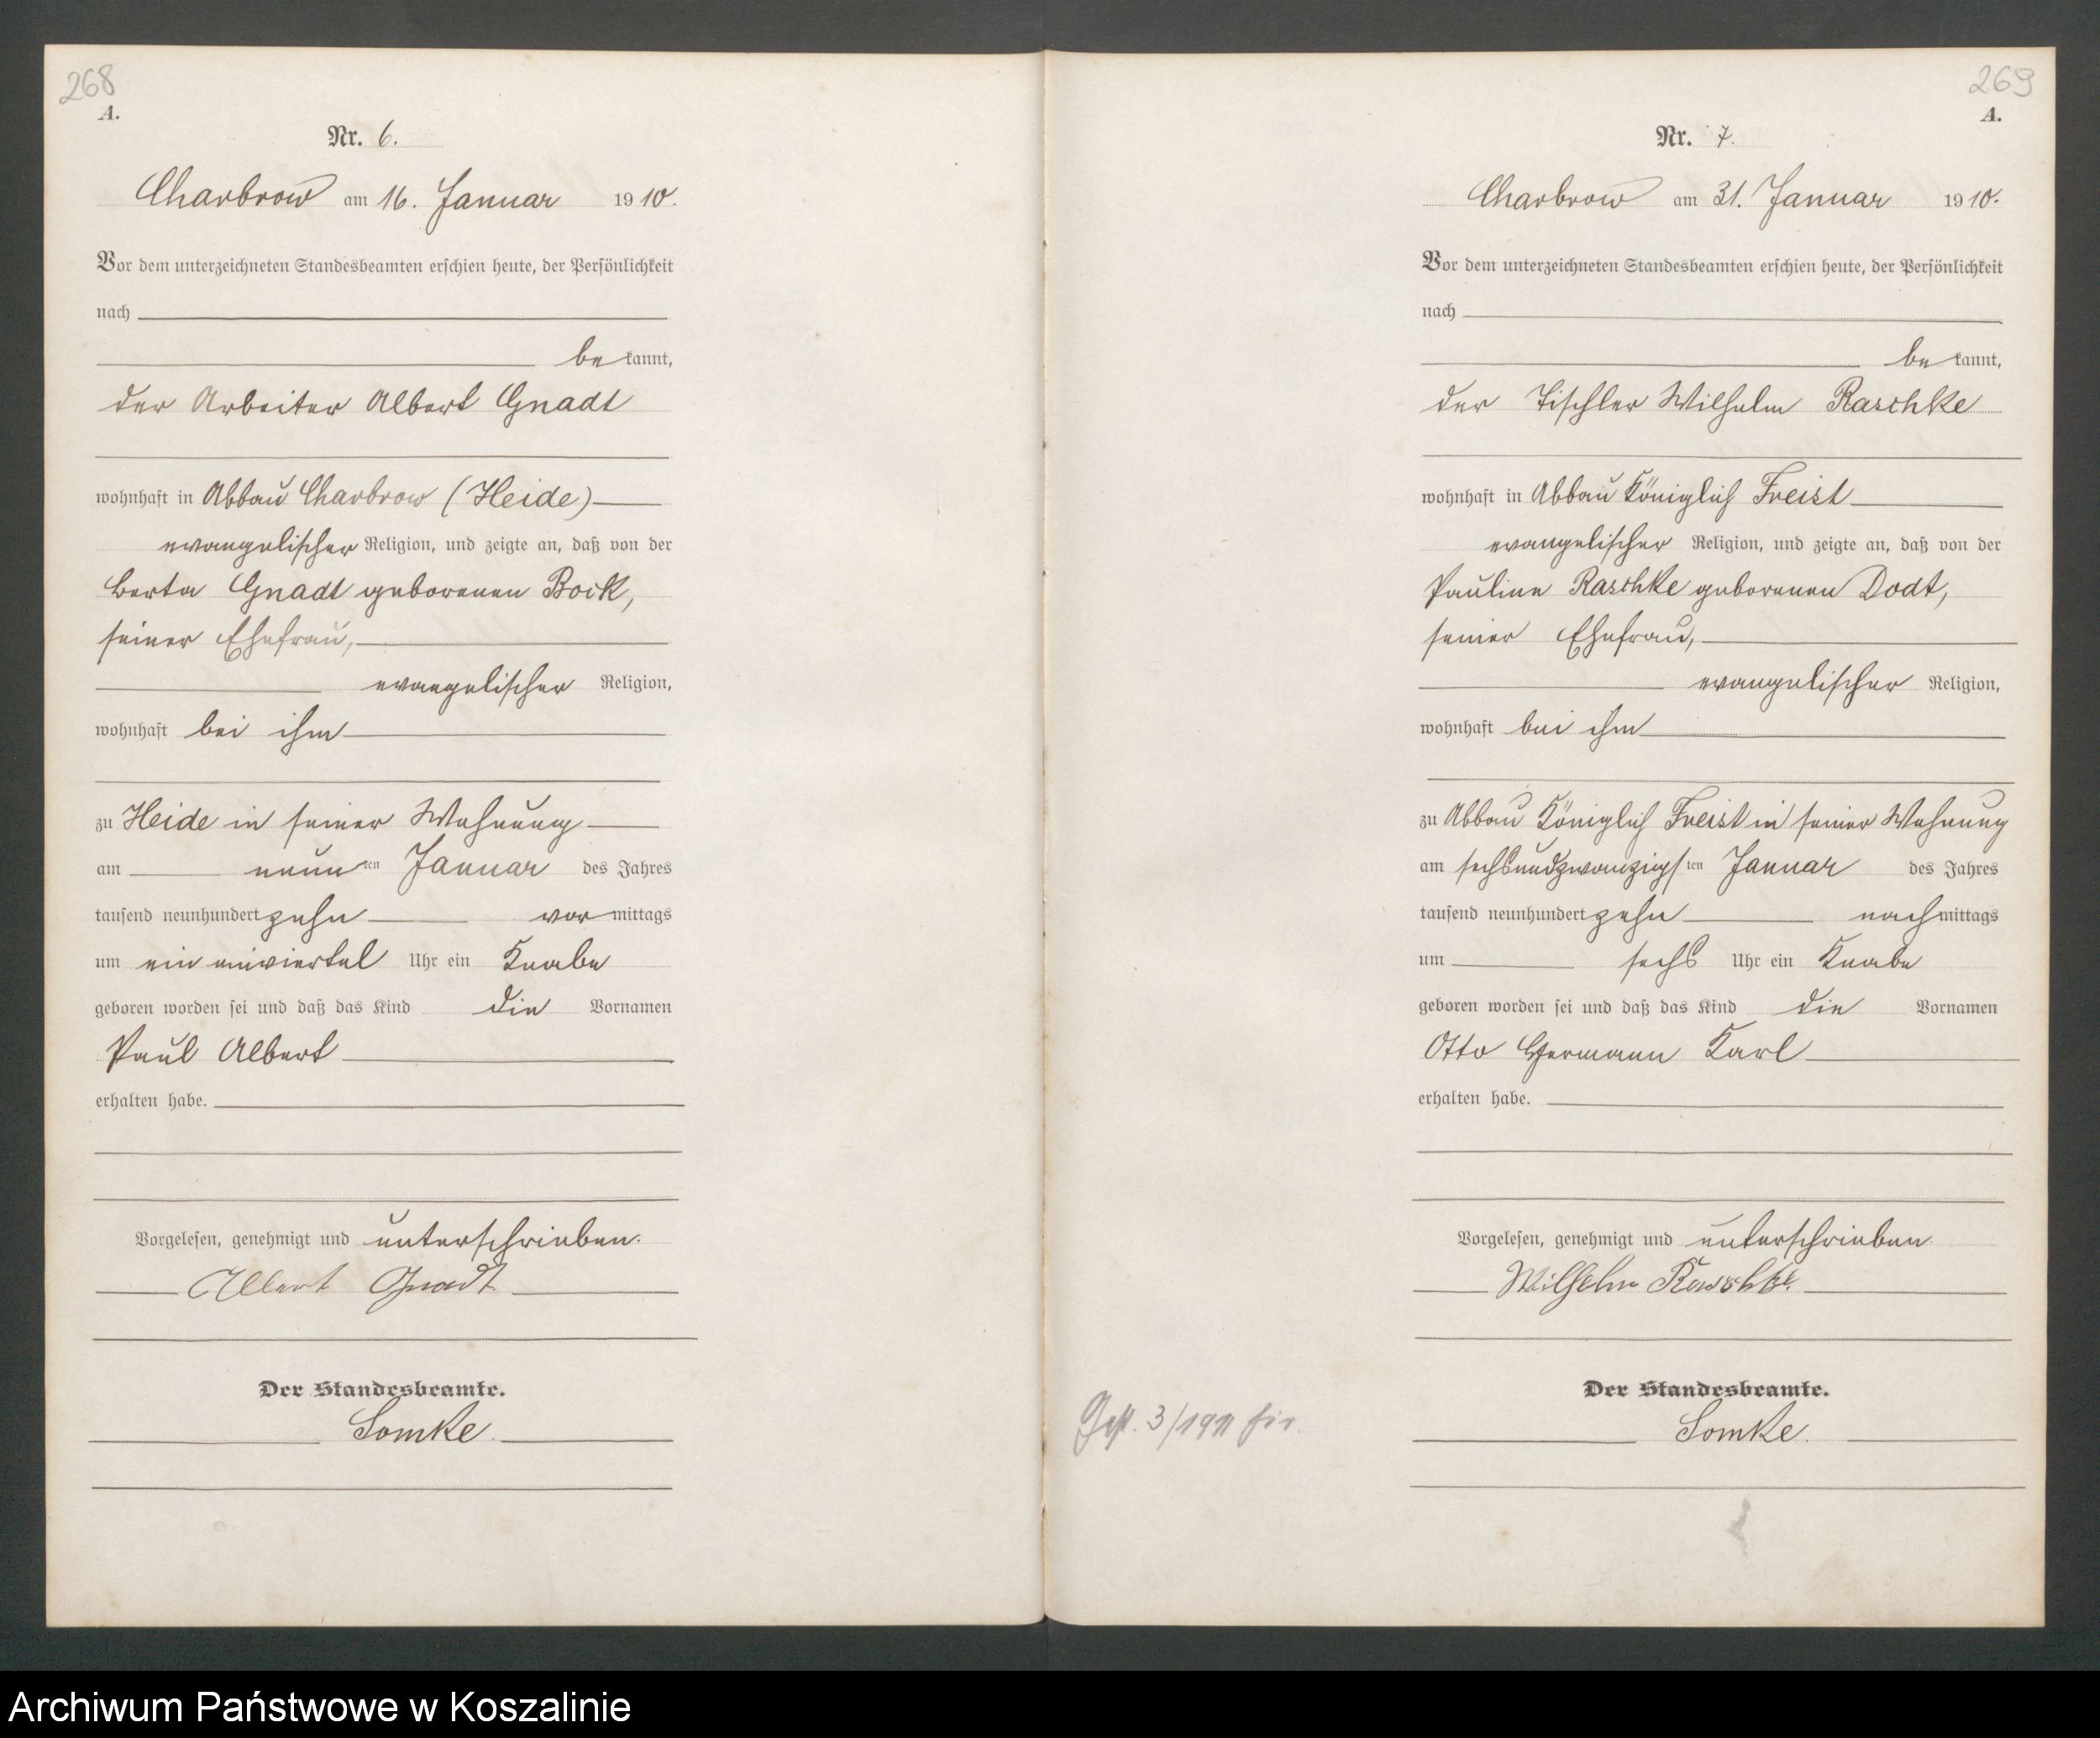 268
A.
Nr. 6.
Charbrow am 16. Januar 1910.
Vor dem unterzeichneten Standesbeamten erschien heute, der Persönlichkeit
nach
bekannt,
der Arbeiter Albert Gnadt
wohnhaft in Abbau Charbrow (Heide)
evangelischer Religion, und zeigte an, daß von der
Berta Gnadt geborenen Bock,
seiner Ehefrau,
evangelischer Religion,
wohnhaft bei ihm
zu Heide in seiner Wohnung
am neunten Januar des Jahres
tausend neunhundert zehn vormittags
um ein einviertel Uhr ein Knabe
geboren worden sei und daß das Kind die Vornamen
Paul Albert
erhalten habe.
Vorgelesen, genehmigt und unterschrieben.
Albert Gnadt
Der Standesbeamte.
Lomke.
269
A.
Nr. 7.
Charbrow am 31. Januar 1910.
Vor dem unterzeichneten Standesbeamten erschien heute, der Persönlichkeit
nach
bekannt,
der Tischler Wilhelm Raschke
wohnhaft in Abbau Königlich Freist
evangelischer Religion, und zeigte an, daß von der
Pauline Raschke geborenen Dodt,
seiner Ehefrau,
evangelischer Religion,
wohnhaft bei ihm
zu Abbau Königlich Freist in seiner Wohnung
am sechsundzwanzigsten Januar des Jahres
tausend neunhundert zehn nachmittags
um sechs Uhr ein Knabe
geboren worden sei und daß das Kind die Vornamen
Otto Hermann Karl
erhalten habe.
Vorgelesen, genehmigt und unterschrieben
Wilhelm Raschke.
Der Standesbeamte.
Lomke.
3/1911
Archiwum Państwowe w Koszalinie